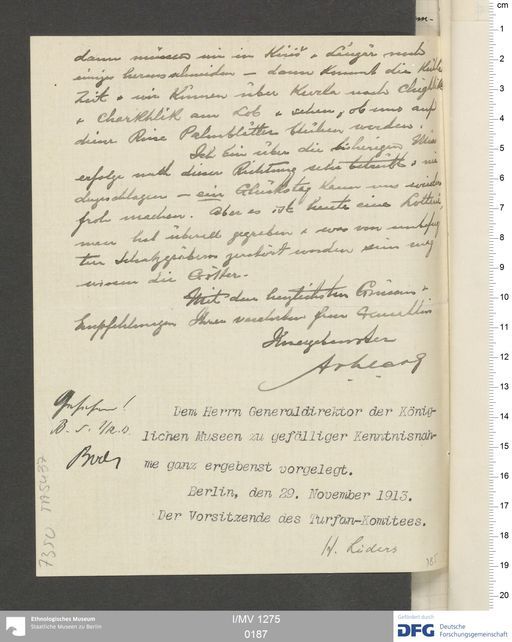 dann müssen wir in Kiriš & Šingär noch
einiges herausschneiden — dann kommt die kühle
Zeit & wir können über Kurla nach Chighlik
& Charkhlik am Lob & sehen, ob uns auf
dieser Reise Palmblätter blühen werden.
Ich bin über die bisherigen Miss
erfolge nach dieser Richtung sehr betrübt &
— ein Glückstag kann uns wieder
froh machen. Aber es ist heute eine Lotterie,
man hat überall gegraben & was von
ten Schatzgräbern zerstört worden sein mag
wissen die Götter.
Mit den herzlichsten Grüssen &
Empfehlungen Ihrer verehrten Frau Gemahlin
Ihr ergebenster
Gesehen!
B. 5. 12.
Bode
Dem Herrn Generaldirektor der König-
lichen Museen zu gefälliger Kenntnisnah-
me ganz ergebenst vorgelegt.
Berlin, den 29. November 1913.
Der Vorsitzende des Turfan-Komitees.
H. Lüders
185
7350
cm
1
2
3
4
5
6
7
8
9
10
11
12
13
14
15
16
17
18
19
20
Ethnologisches Museum
Staatliche Museen zu Berlin
I/MV 1275
0187
Gefördert durch
DFG Deutsche
Forschungsgemeinschaft